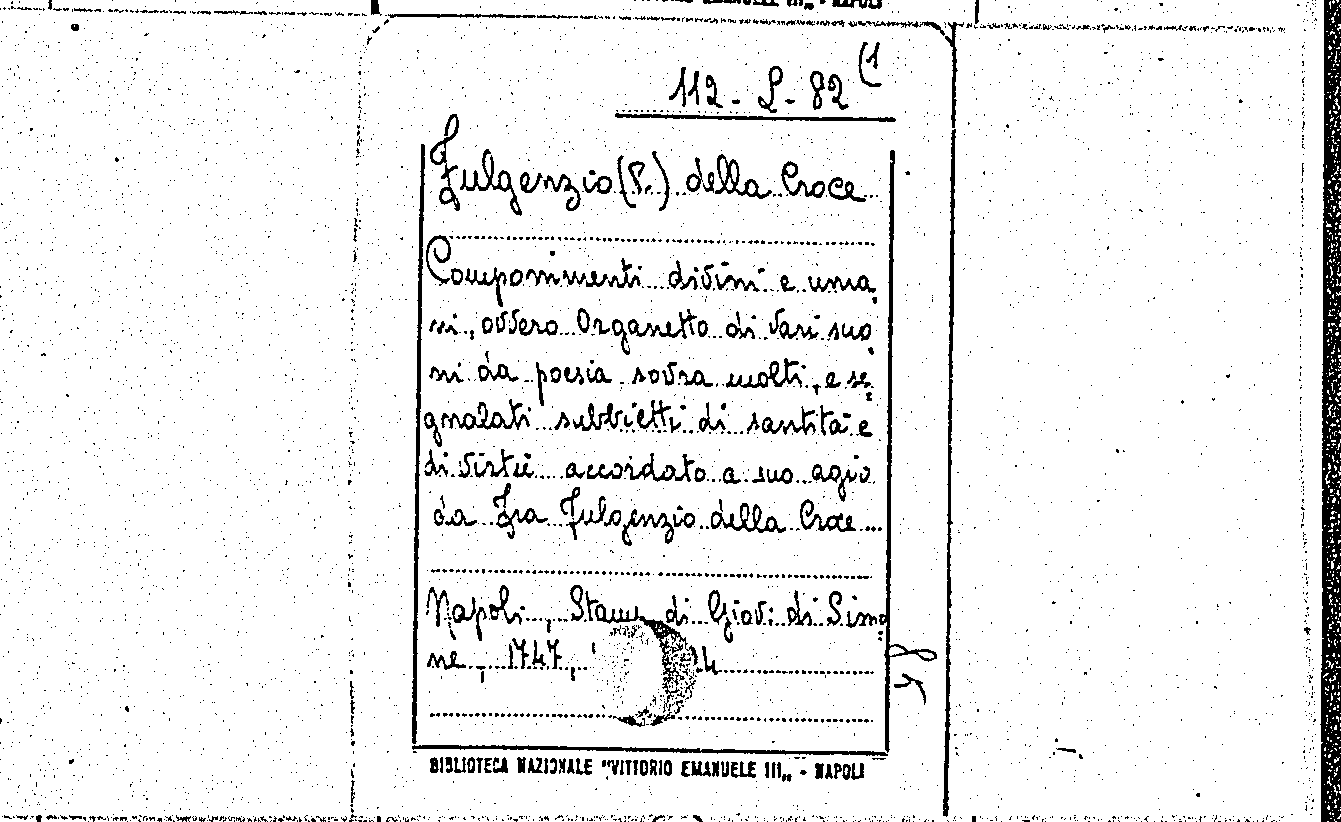 112 - L - 82 (1
Fulgenzio (P.) della Croce
Componimenti divini e uma
ni, ovvero Organetto di vari suo
ni da poesia sovra molti, e se
gnalati subbietti di santità e
di virtù accordato a suo agio
da Fra Fulgenzio della Croce...
Napoli, Stamp. di Giov: di Simo
ne, 1747,
BIBLIOTECA NAZIONALE "VITTORIO EMANUELE III„ - NAPOLI